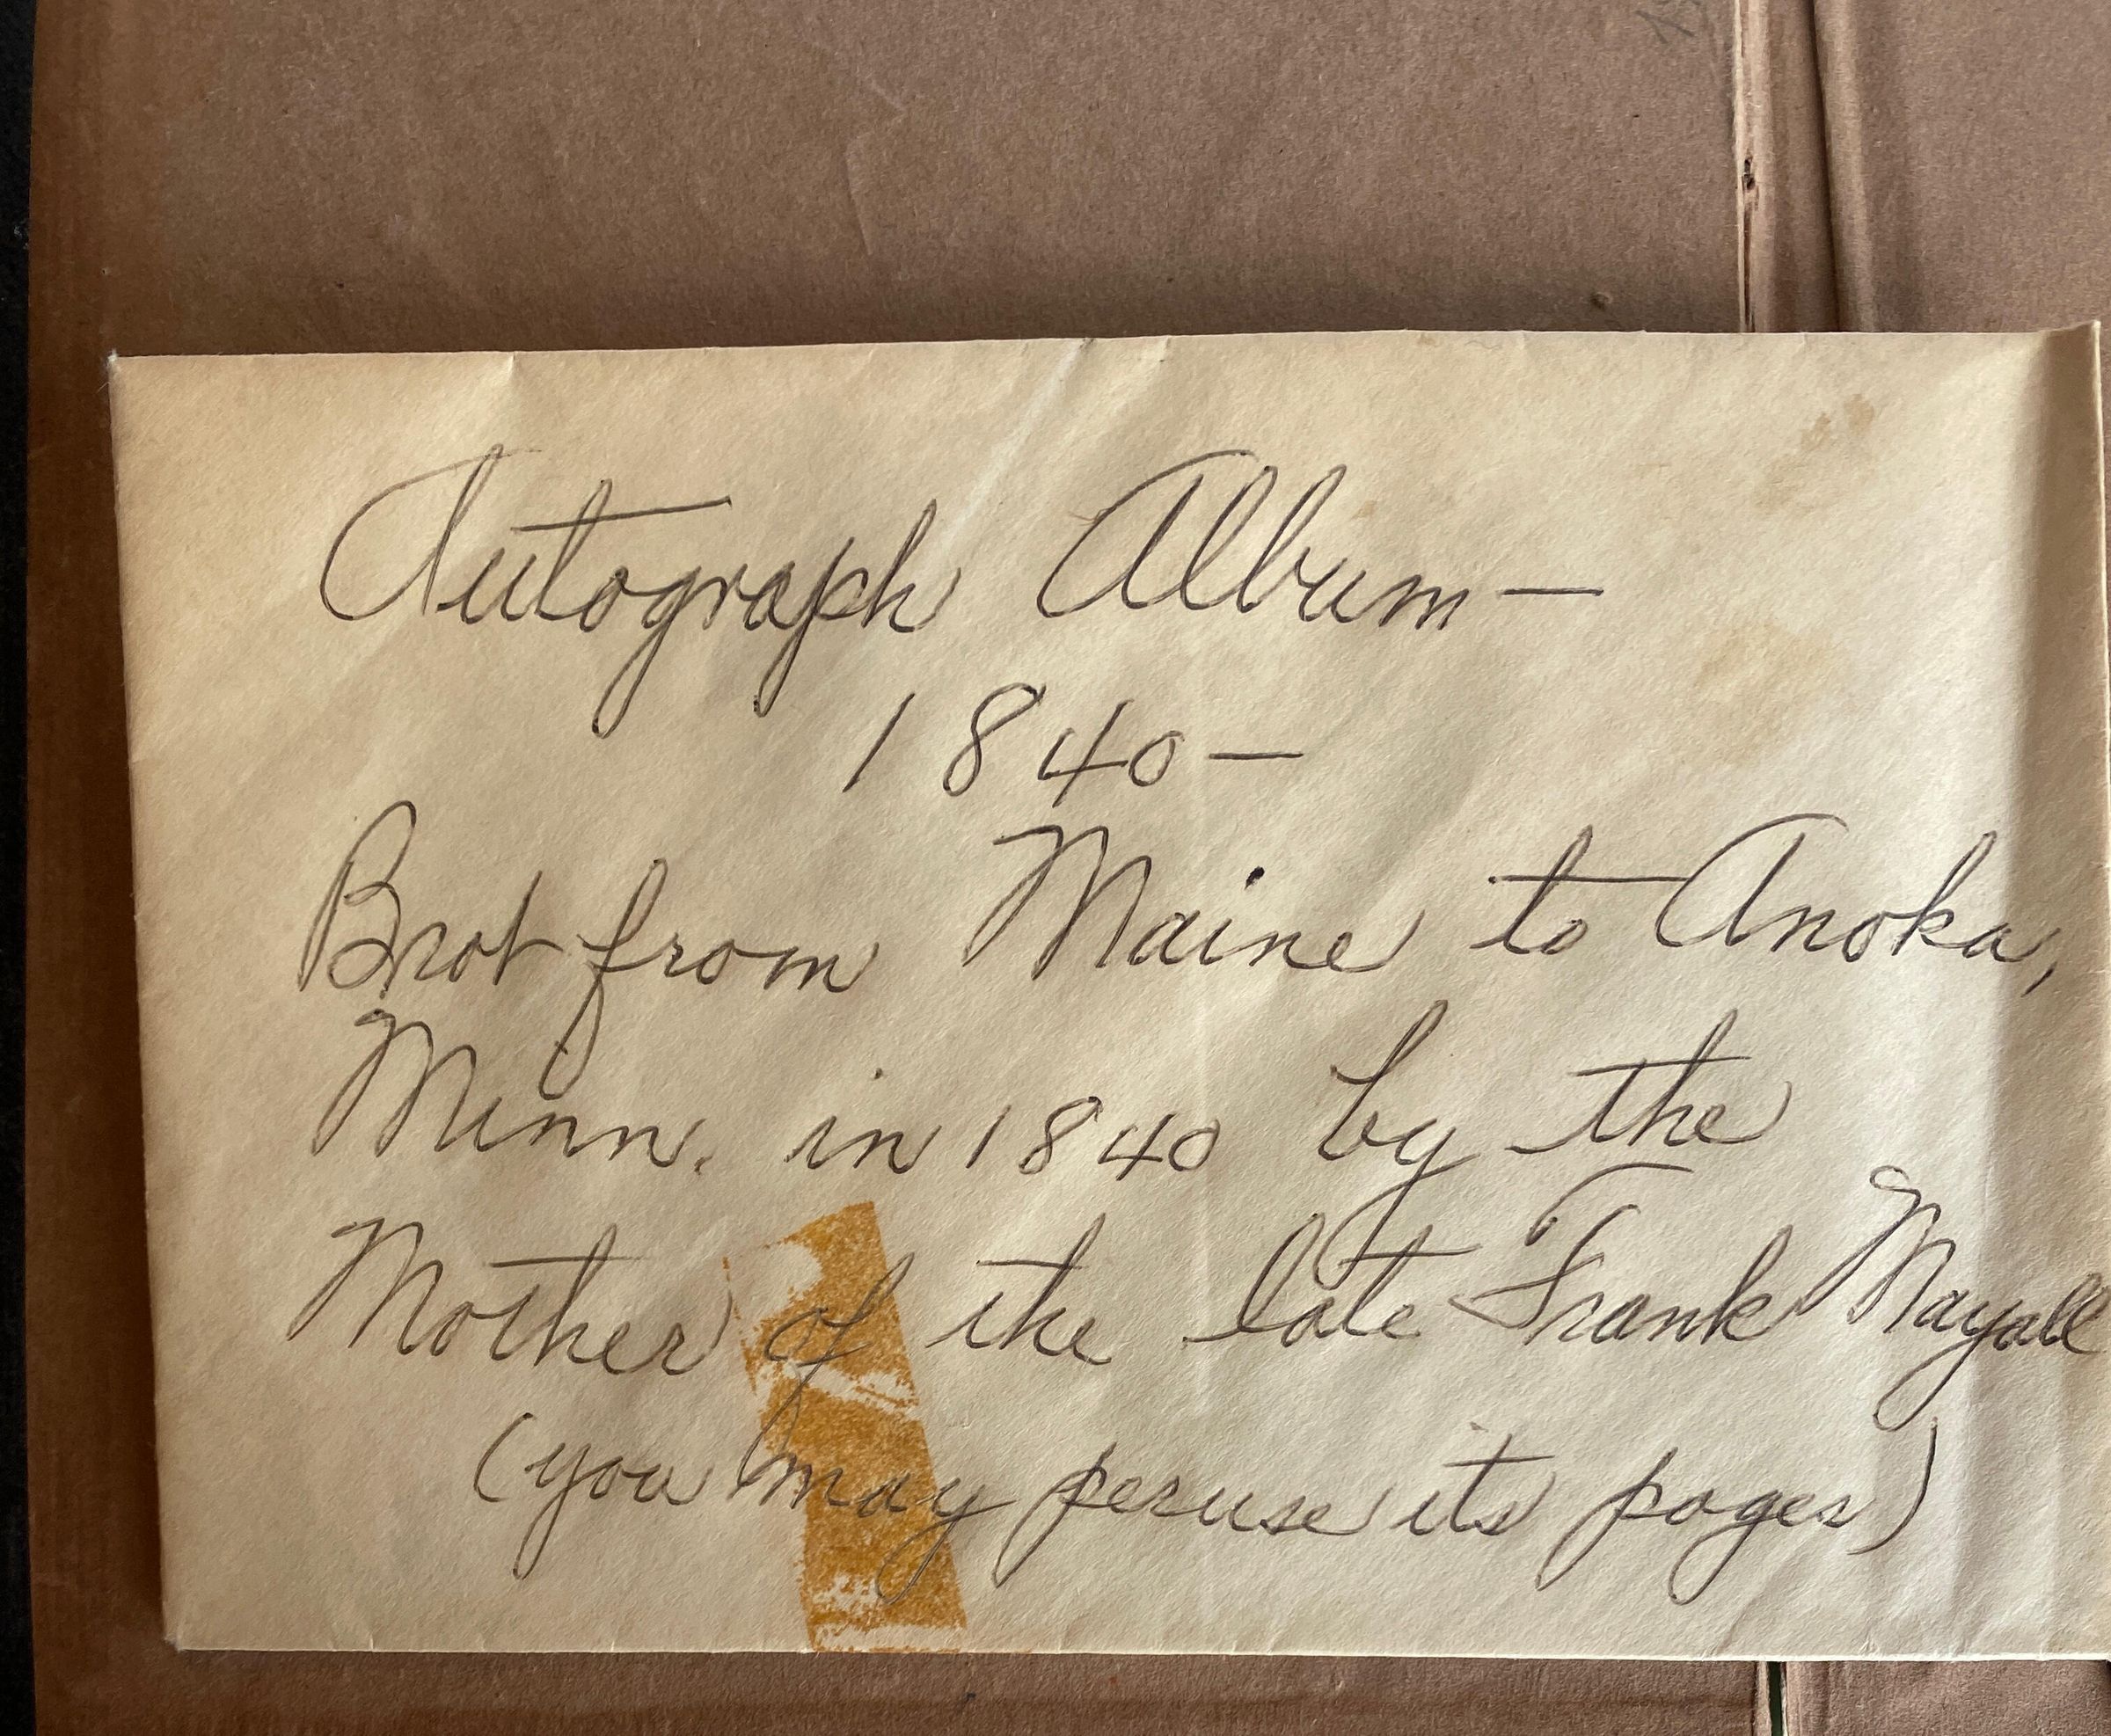 Autograph Album—
1840—
Brot from Maine to Anoka,
Minn. in 1840 by the
Mother of the late Frank Mayall
(you may peruse its pages)